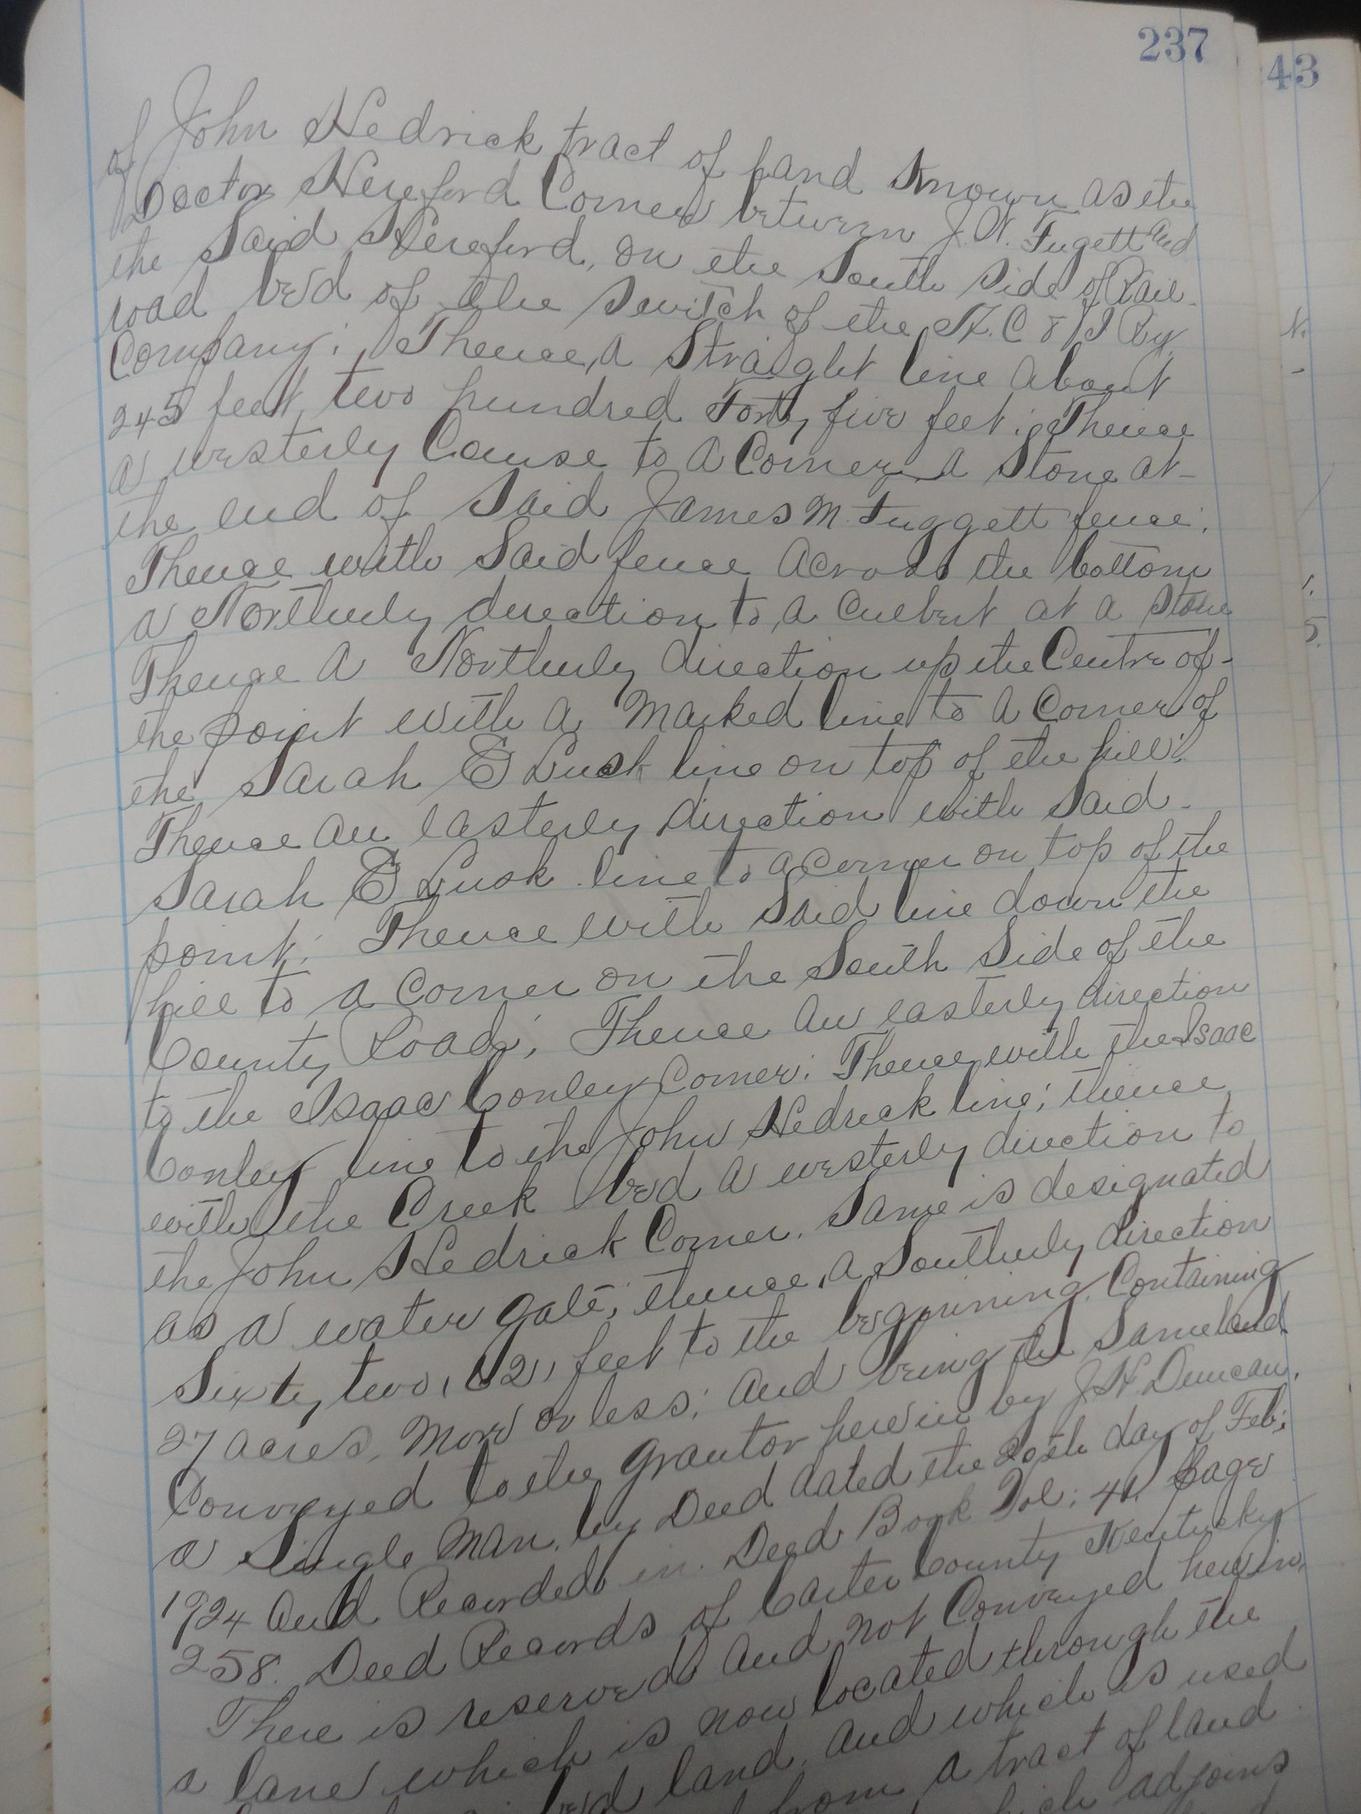 237
43
of John Hedrick tract of land known as the
Doctor Hereford Corner between J. W. Fugett and
the Said Hereford, on the South Side of Rail-
road bed of the switch of the K. C & Ry
Company; Thence, a Straight line about
245 feet, two hundred Forty five feet; Thence
a westerly Course to a Corner, a Stone at-
the end of Said James M. Fuggett fence;
Thence with Said fence across the bottom
a Northerly direction to a Culbert at a Stone
Thence a Northerly direction up the Centre of-
the point with a Marked line to a Corner of
the Sarah E Lusk line on top of the hill;
Thence an easterly direction with Said-
Sarah E Lusk line to a corner on top of the
point; Thence with Said line down the
hill to a Corner on the South Side of the
County Road; Thence an easterly direction
to the Isaac Conley Corner; Thence, with the Isaac
Conley line to the John Hedrick line; thence
with the Creek bed a westerly direction to
the John Hedrick Corner. Same is designated
as a water gate; thence, a Southerly direction
Sixty two, 62, feet to the beginning, Containing
27 acres, More or less; and being the Same land
Conveyed to the grantor herein by J. H. Duncan,
a Single Man, by Deed dated the day of Feb;
1924 and Recorded in Deed Book Vol; 41, Page
258. Deed Records of Carter County Kentucky
There is reserved and not Conveyed herein,
a lane which is now located through the
land, and which is used
from a tract of land
which adjoins